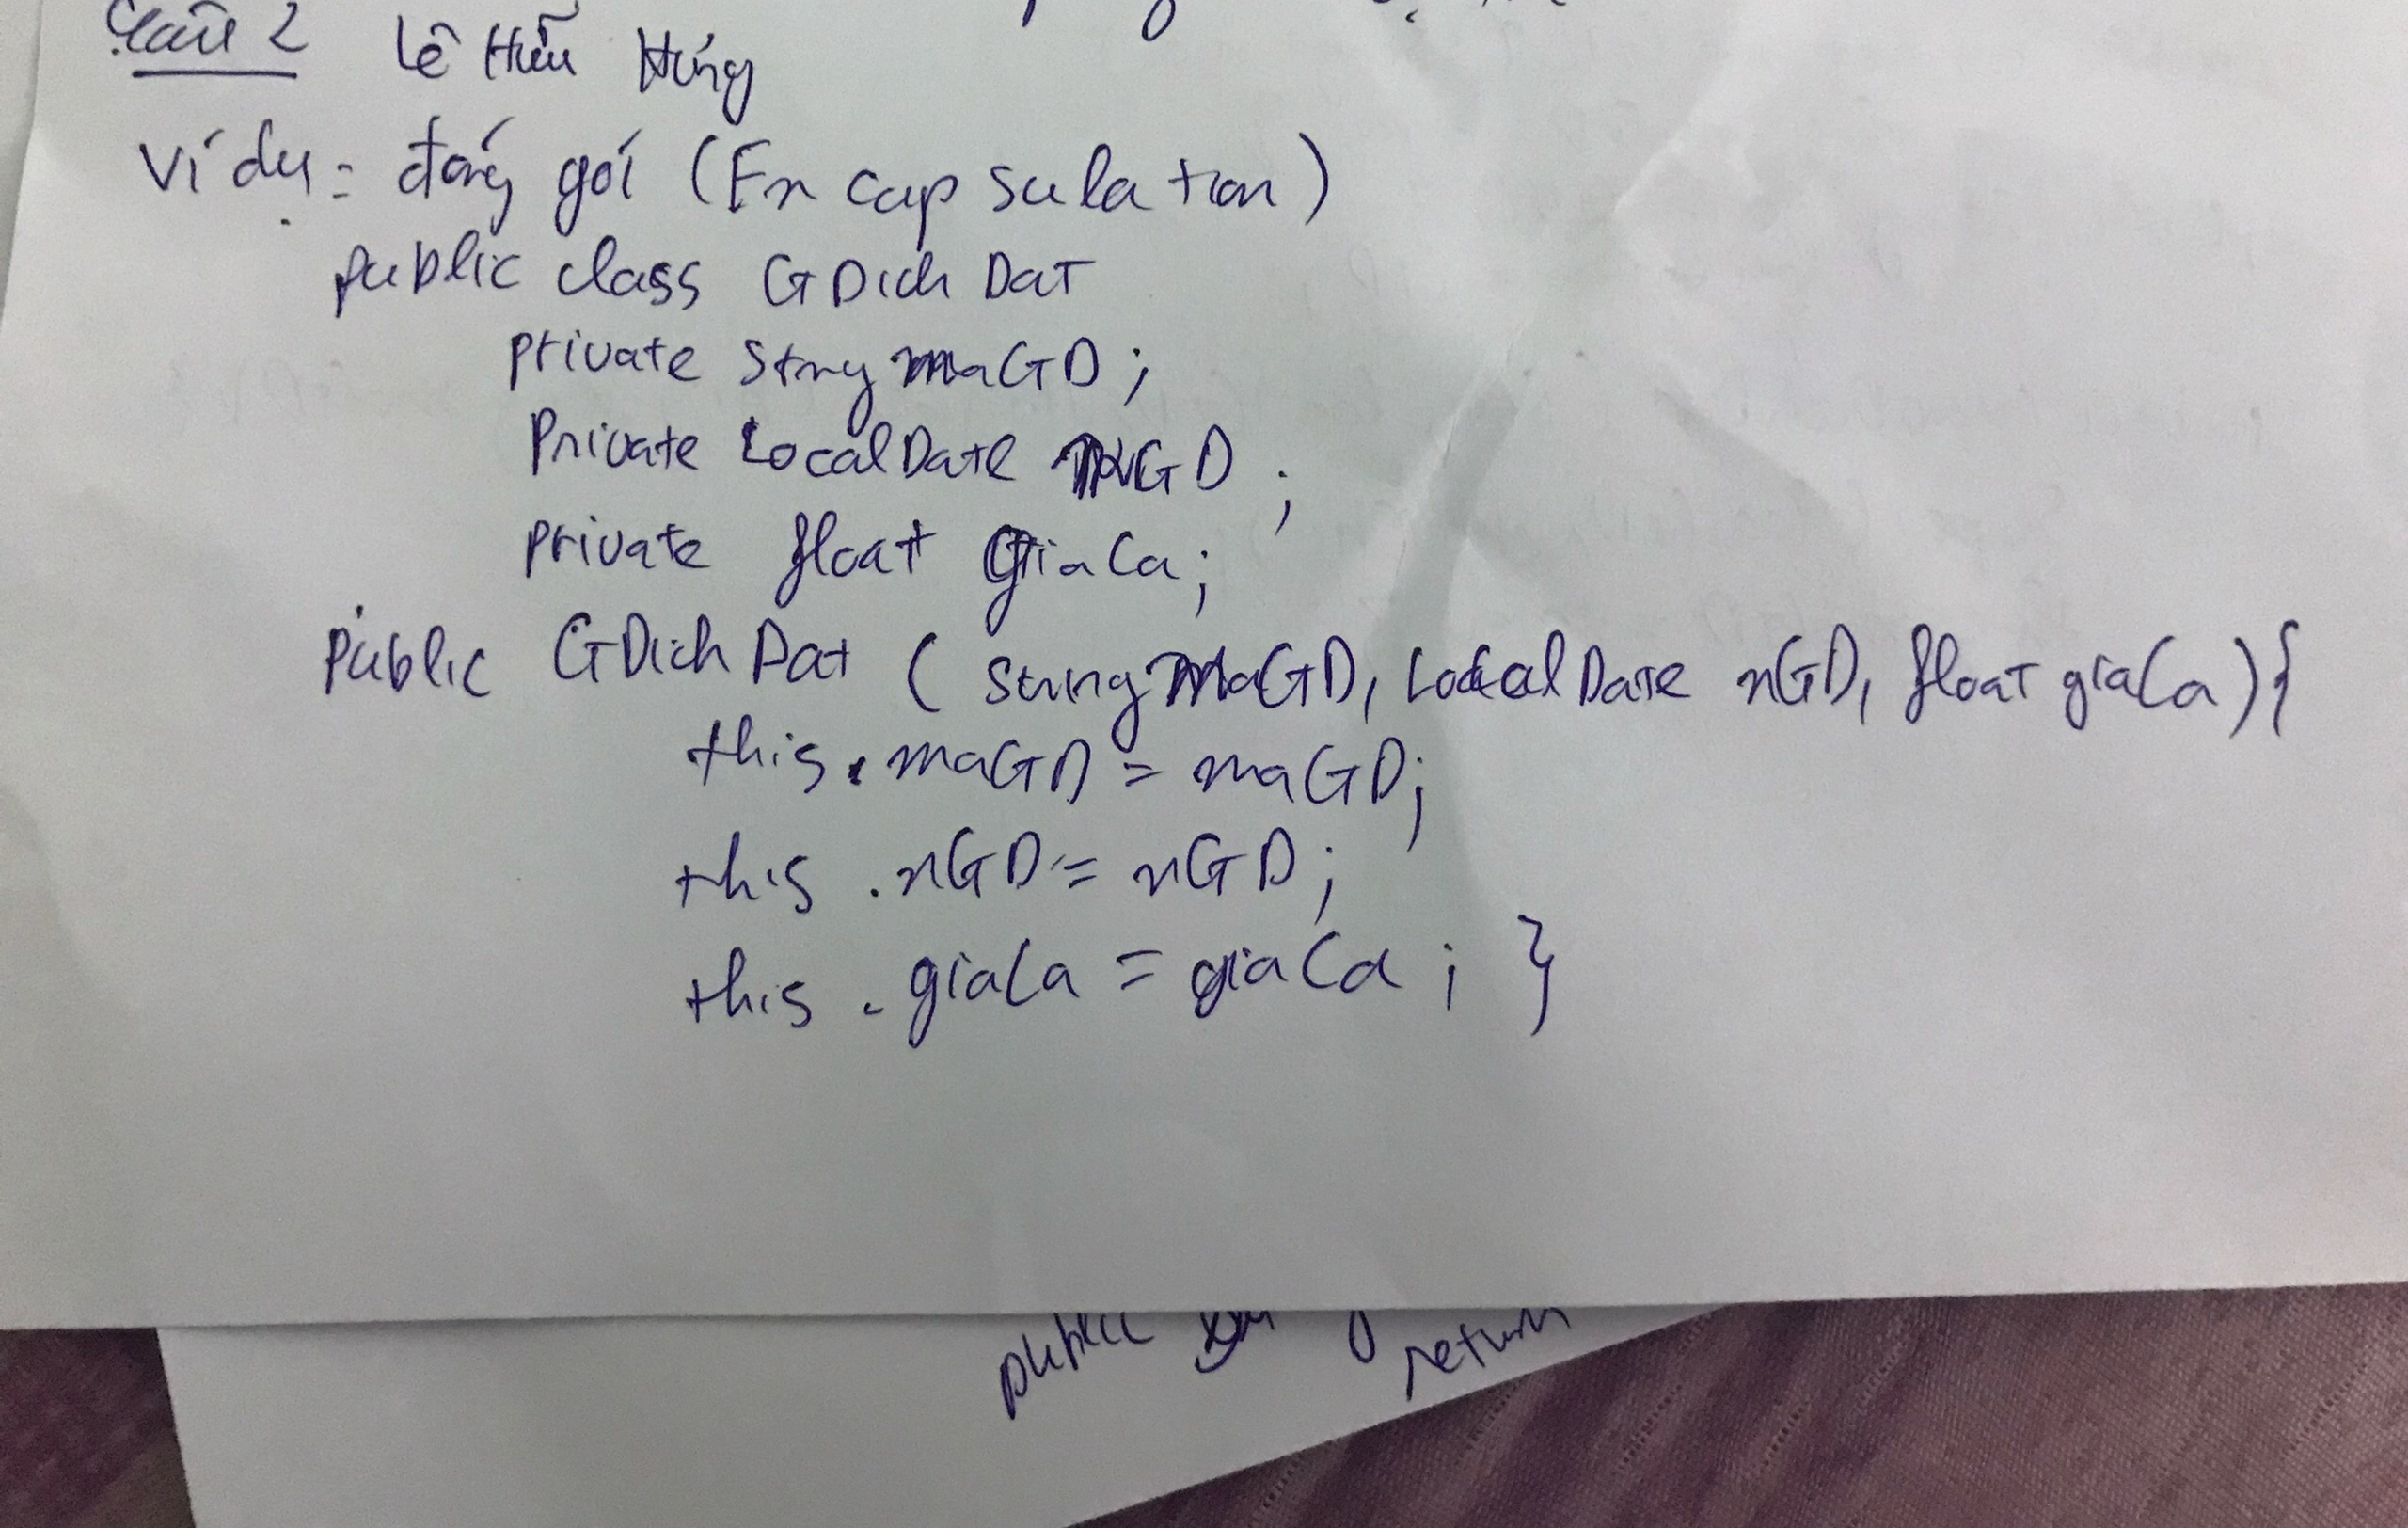 Câu 2 Lê Hữu Hưng
Ví dụ: đóng gói (Encapsulation)
public class GDichDat
private String maGD;
Private LocalDate nGD;
private float giaCa;
Public GDichDat (String maGD, LocalDate nGD, float giaCa){
this.maGD = maGD;
this.nGD = nGD;
this.giaCa = giaCa; }
public
return